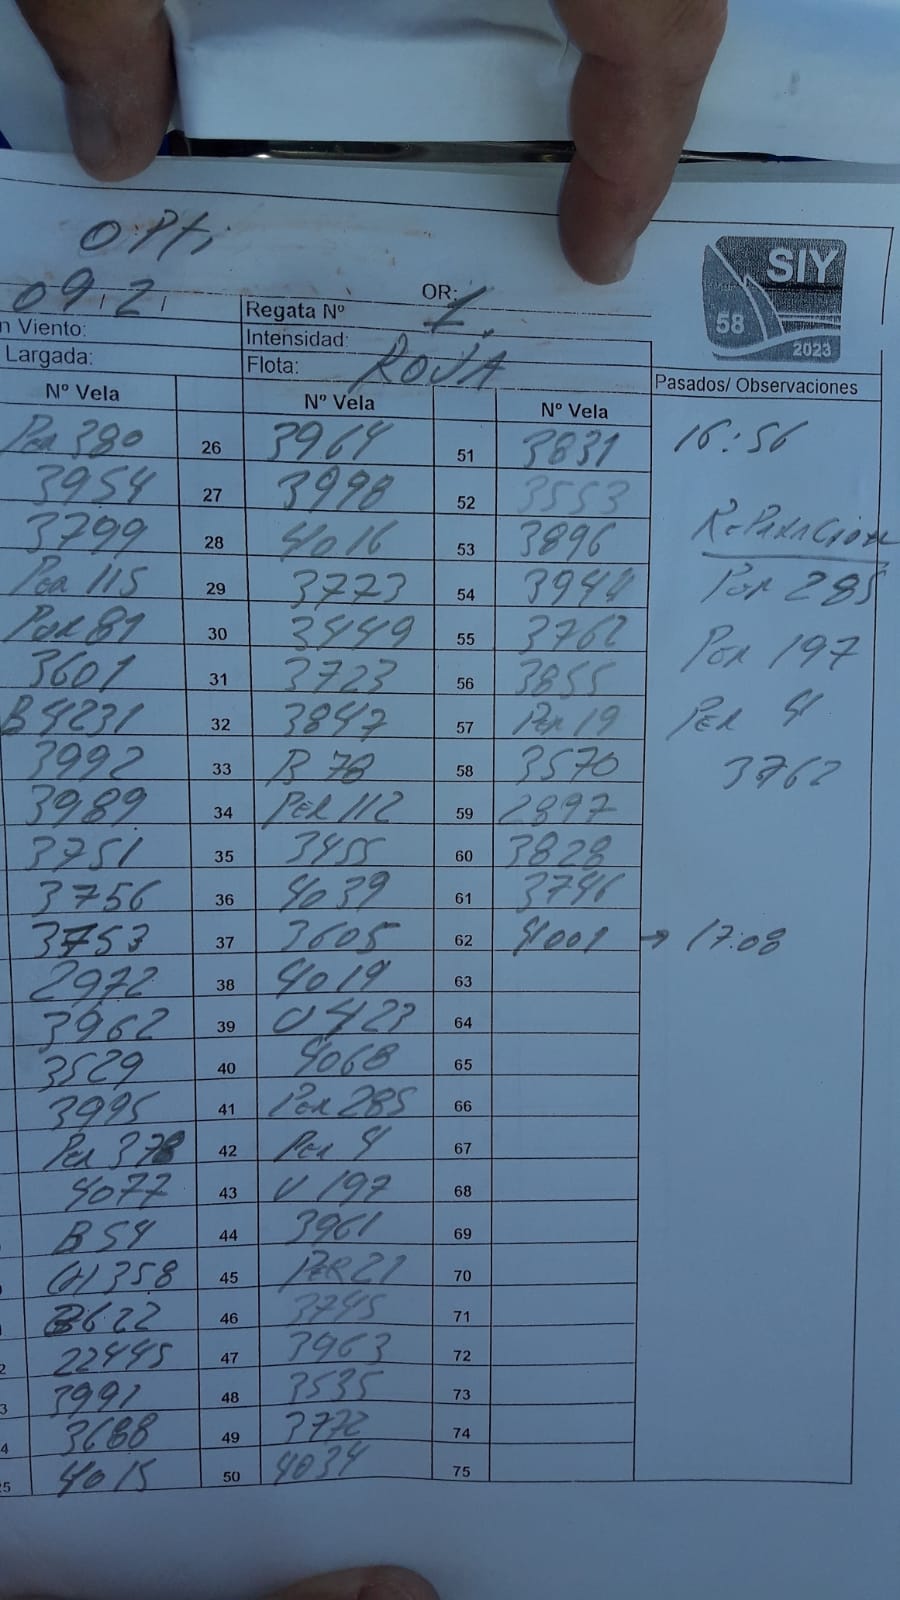 OPti
SIY
58
2023
09/2/
OR:
Regata Nº 1.
n Viento:
Intensidad:
Largada:
Flota: ROJA
Pasados/ Observaciones
Nº Vela Nº Vela Nº Vela
Per 380 26 3964 51 3831 16:56
3954 27 3998 52 3553
3799 28 4016 53 3896 Reparación
Per 115 29 3773 54 3944 Per 285
Per 81 30 3449 55 3762 Per 197
3601 31 3723 56 3855
B 4231 32 3847 57 Per 19 Per 4
3992 33 B 78 58 3570 3762
3989 34 PER 112 59 2897
3751 35 3455 60 3828
3756 36 4039 61 3746
3753 37 3605 62 4001 → 17:08
2972 38 4019 63
3962 39 U 423 64
3529 40 4068 65
3995 41 Per 285 66
Per 378 42 Per 4 67
4077 43 U 197 68
B 54 44 3961 69
358 45 PER 21 70
622 46 3745 71
2 22445 47 3963 72
3 3991 48 3535 73
4 3688 49 3772 74
25 4015 50 4034 75